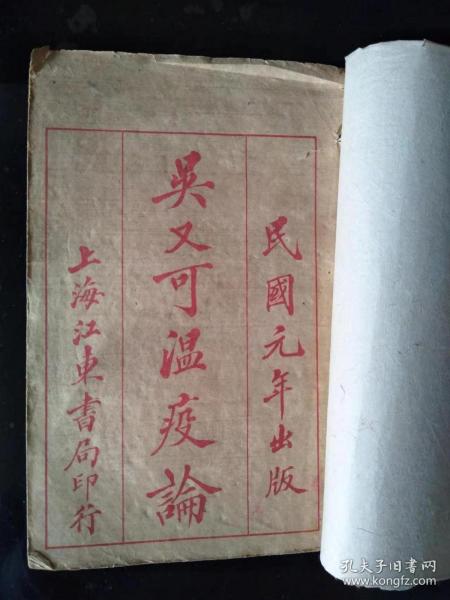 民國元年出版
吳又可溫疫論
上海江東書局印行
孔夫子旧书网
www.kongfz.com